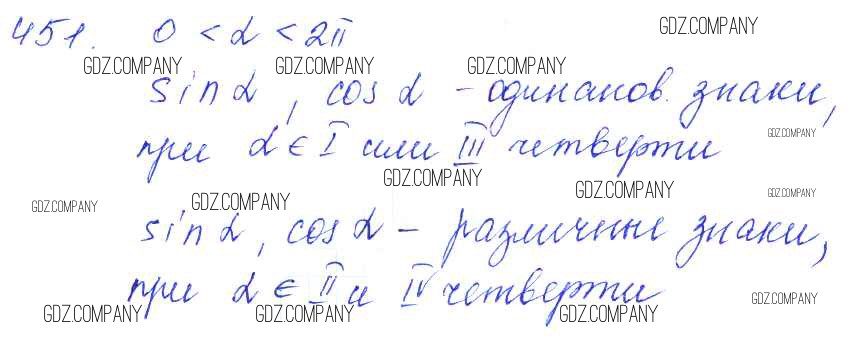 451. 0 < α < 2π
GDZ.COMPANY
GDZ.COMPANY GDZ.COMPANY GDZ.COMPANY
sin α, cos α - одинаков. знаки,
GDZ.COMPANY
при α ∈ I или III четверти
GDZ.COMPANY GDZ.COMPANY GDZ.COMPANY
GDZ.COMPANY GDZ.COMPANY
sin α, cos α - различные знаки,
при α ∈ II и IV четверти
GDZ.COMPANY
GDZ.COMPANY GDZ.COMPANY GDZ.COMPANY